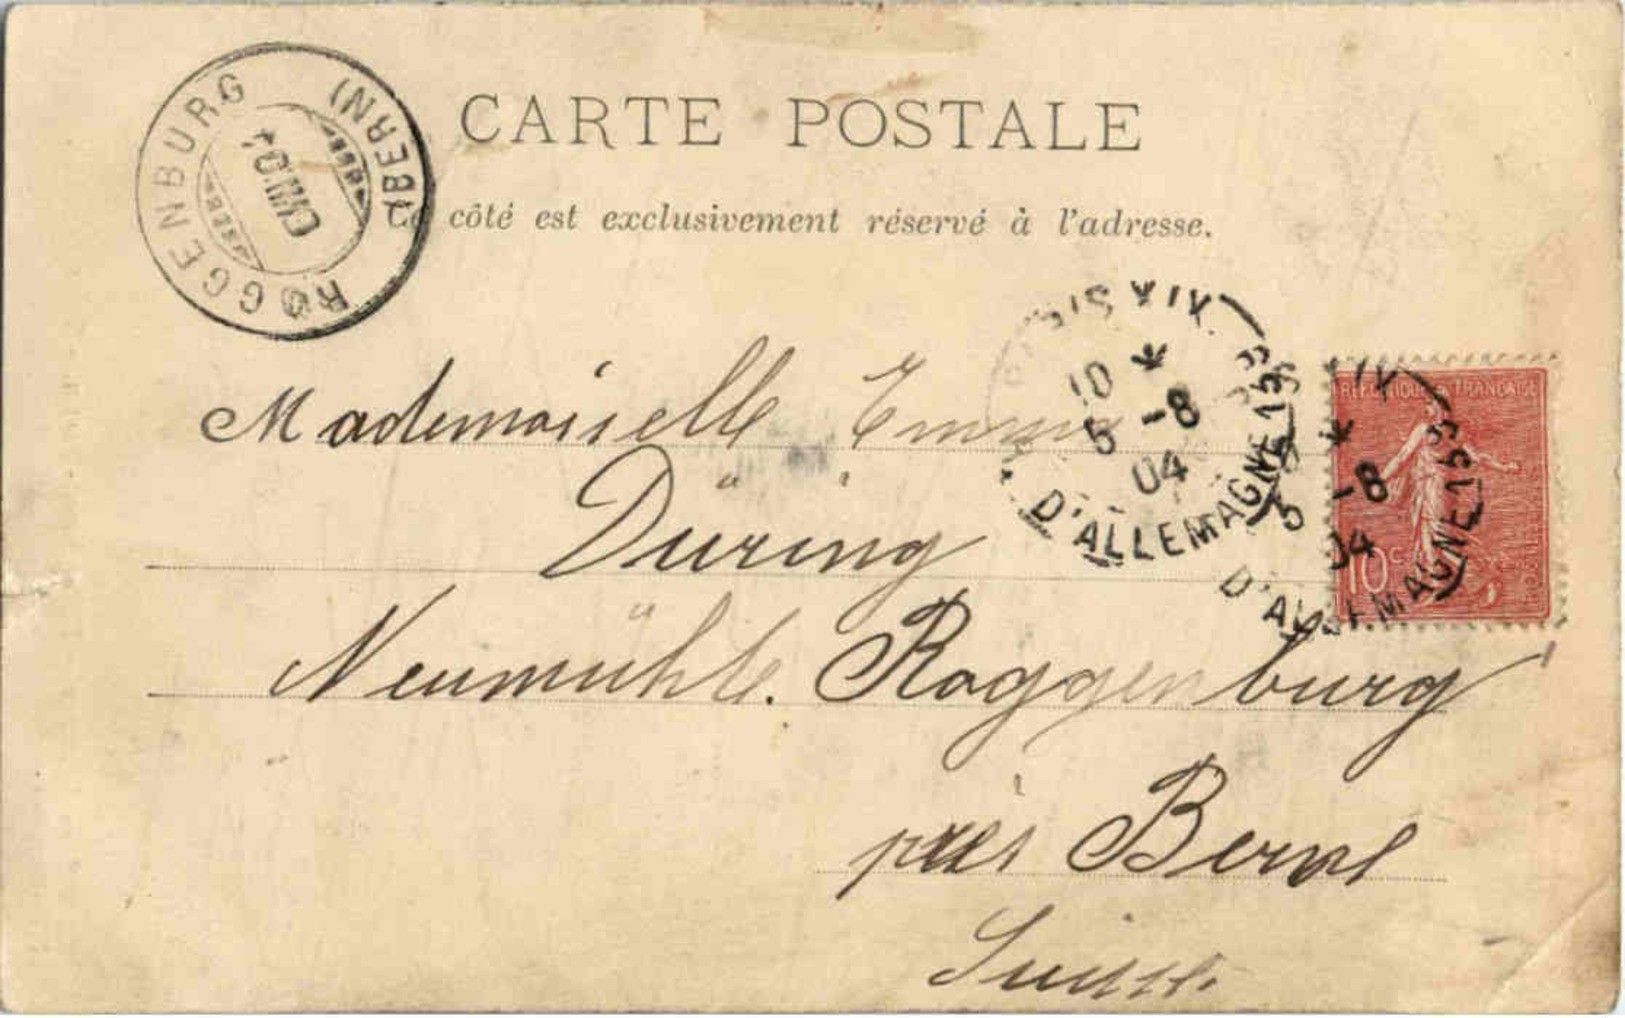 CARTE POSTALE
Ce côté est exclusivement réservé à l'adresse.
ROGGENBURG (BERN)
VIII 04
PARIS XIX
10 *
5 -8
04
D'ALLEMAGNE 153
XIX
*
5 -8
04
D'ALLEMAGNE 153
REPUBLIQUE FRANCAISE
10c
POSTES
Mademoiselle Emma
Düring
Neumühle. Roggenburg
près Berne
Suisse.